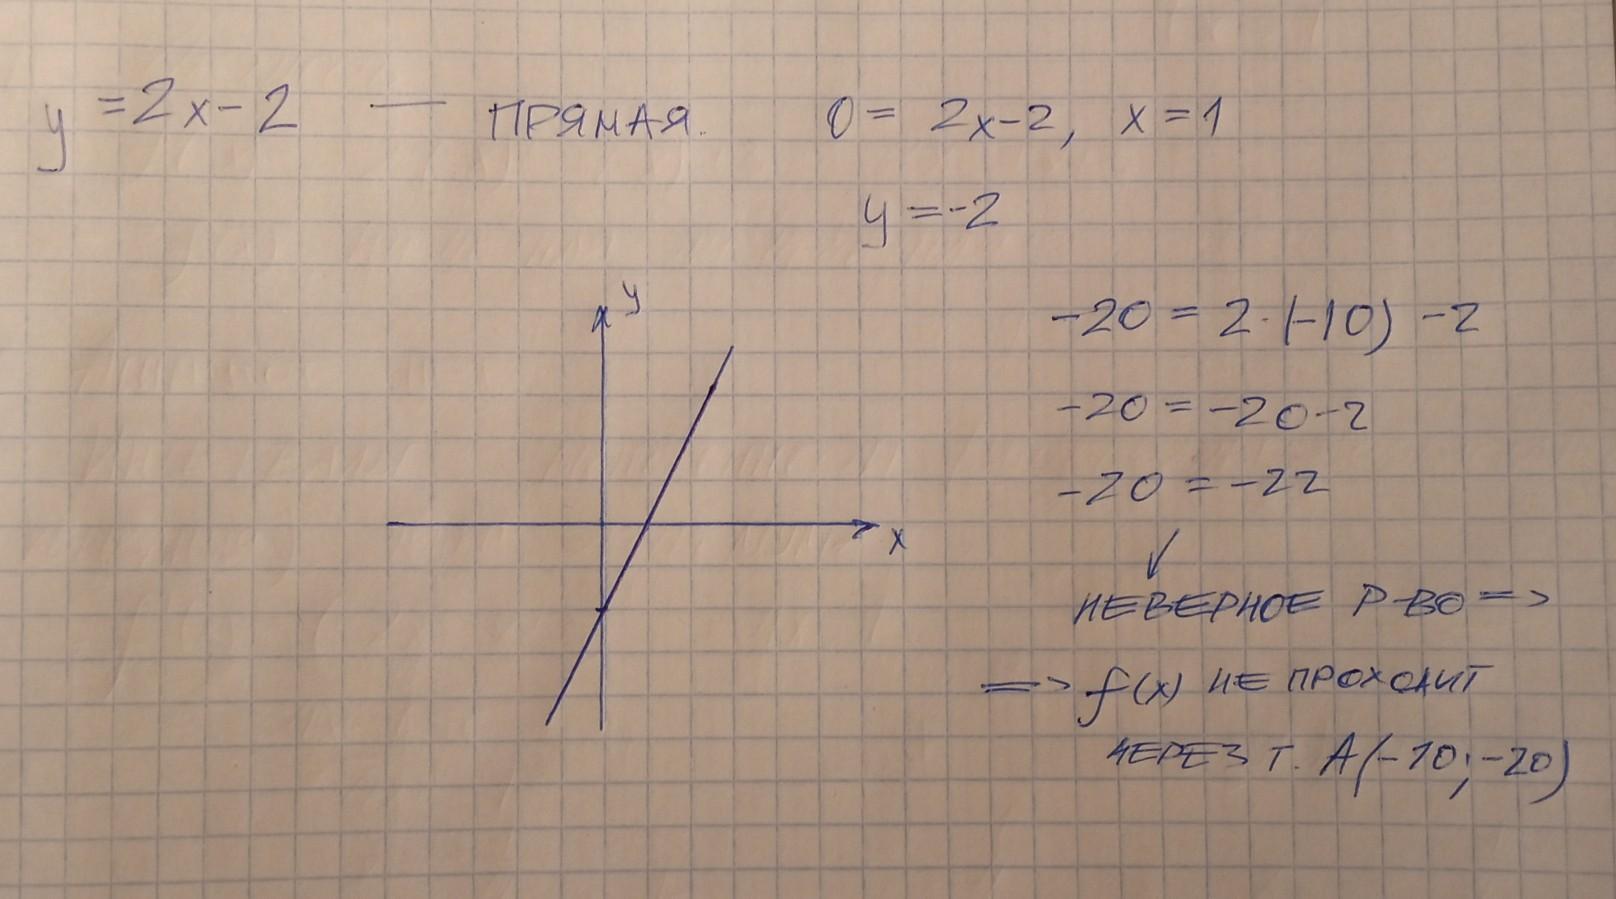 y = 2x - 2 — ПРЯМАЯ. 0 = 2x-2, x = 1
y = -2
y
x
-20 = 2·(-10) - 2
-20 = -20-2
-20 = -22
НЕВЕРНОЕ Р-ВО =>
=> f(x) НЕ ПРОХОДИТ
ЧЕРЕЗ Т. A(-10;-20)